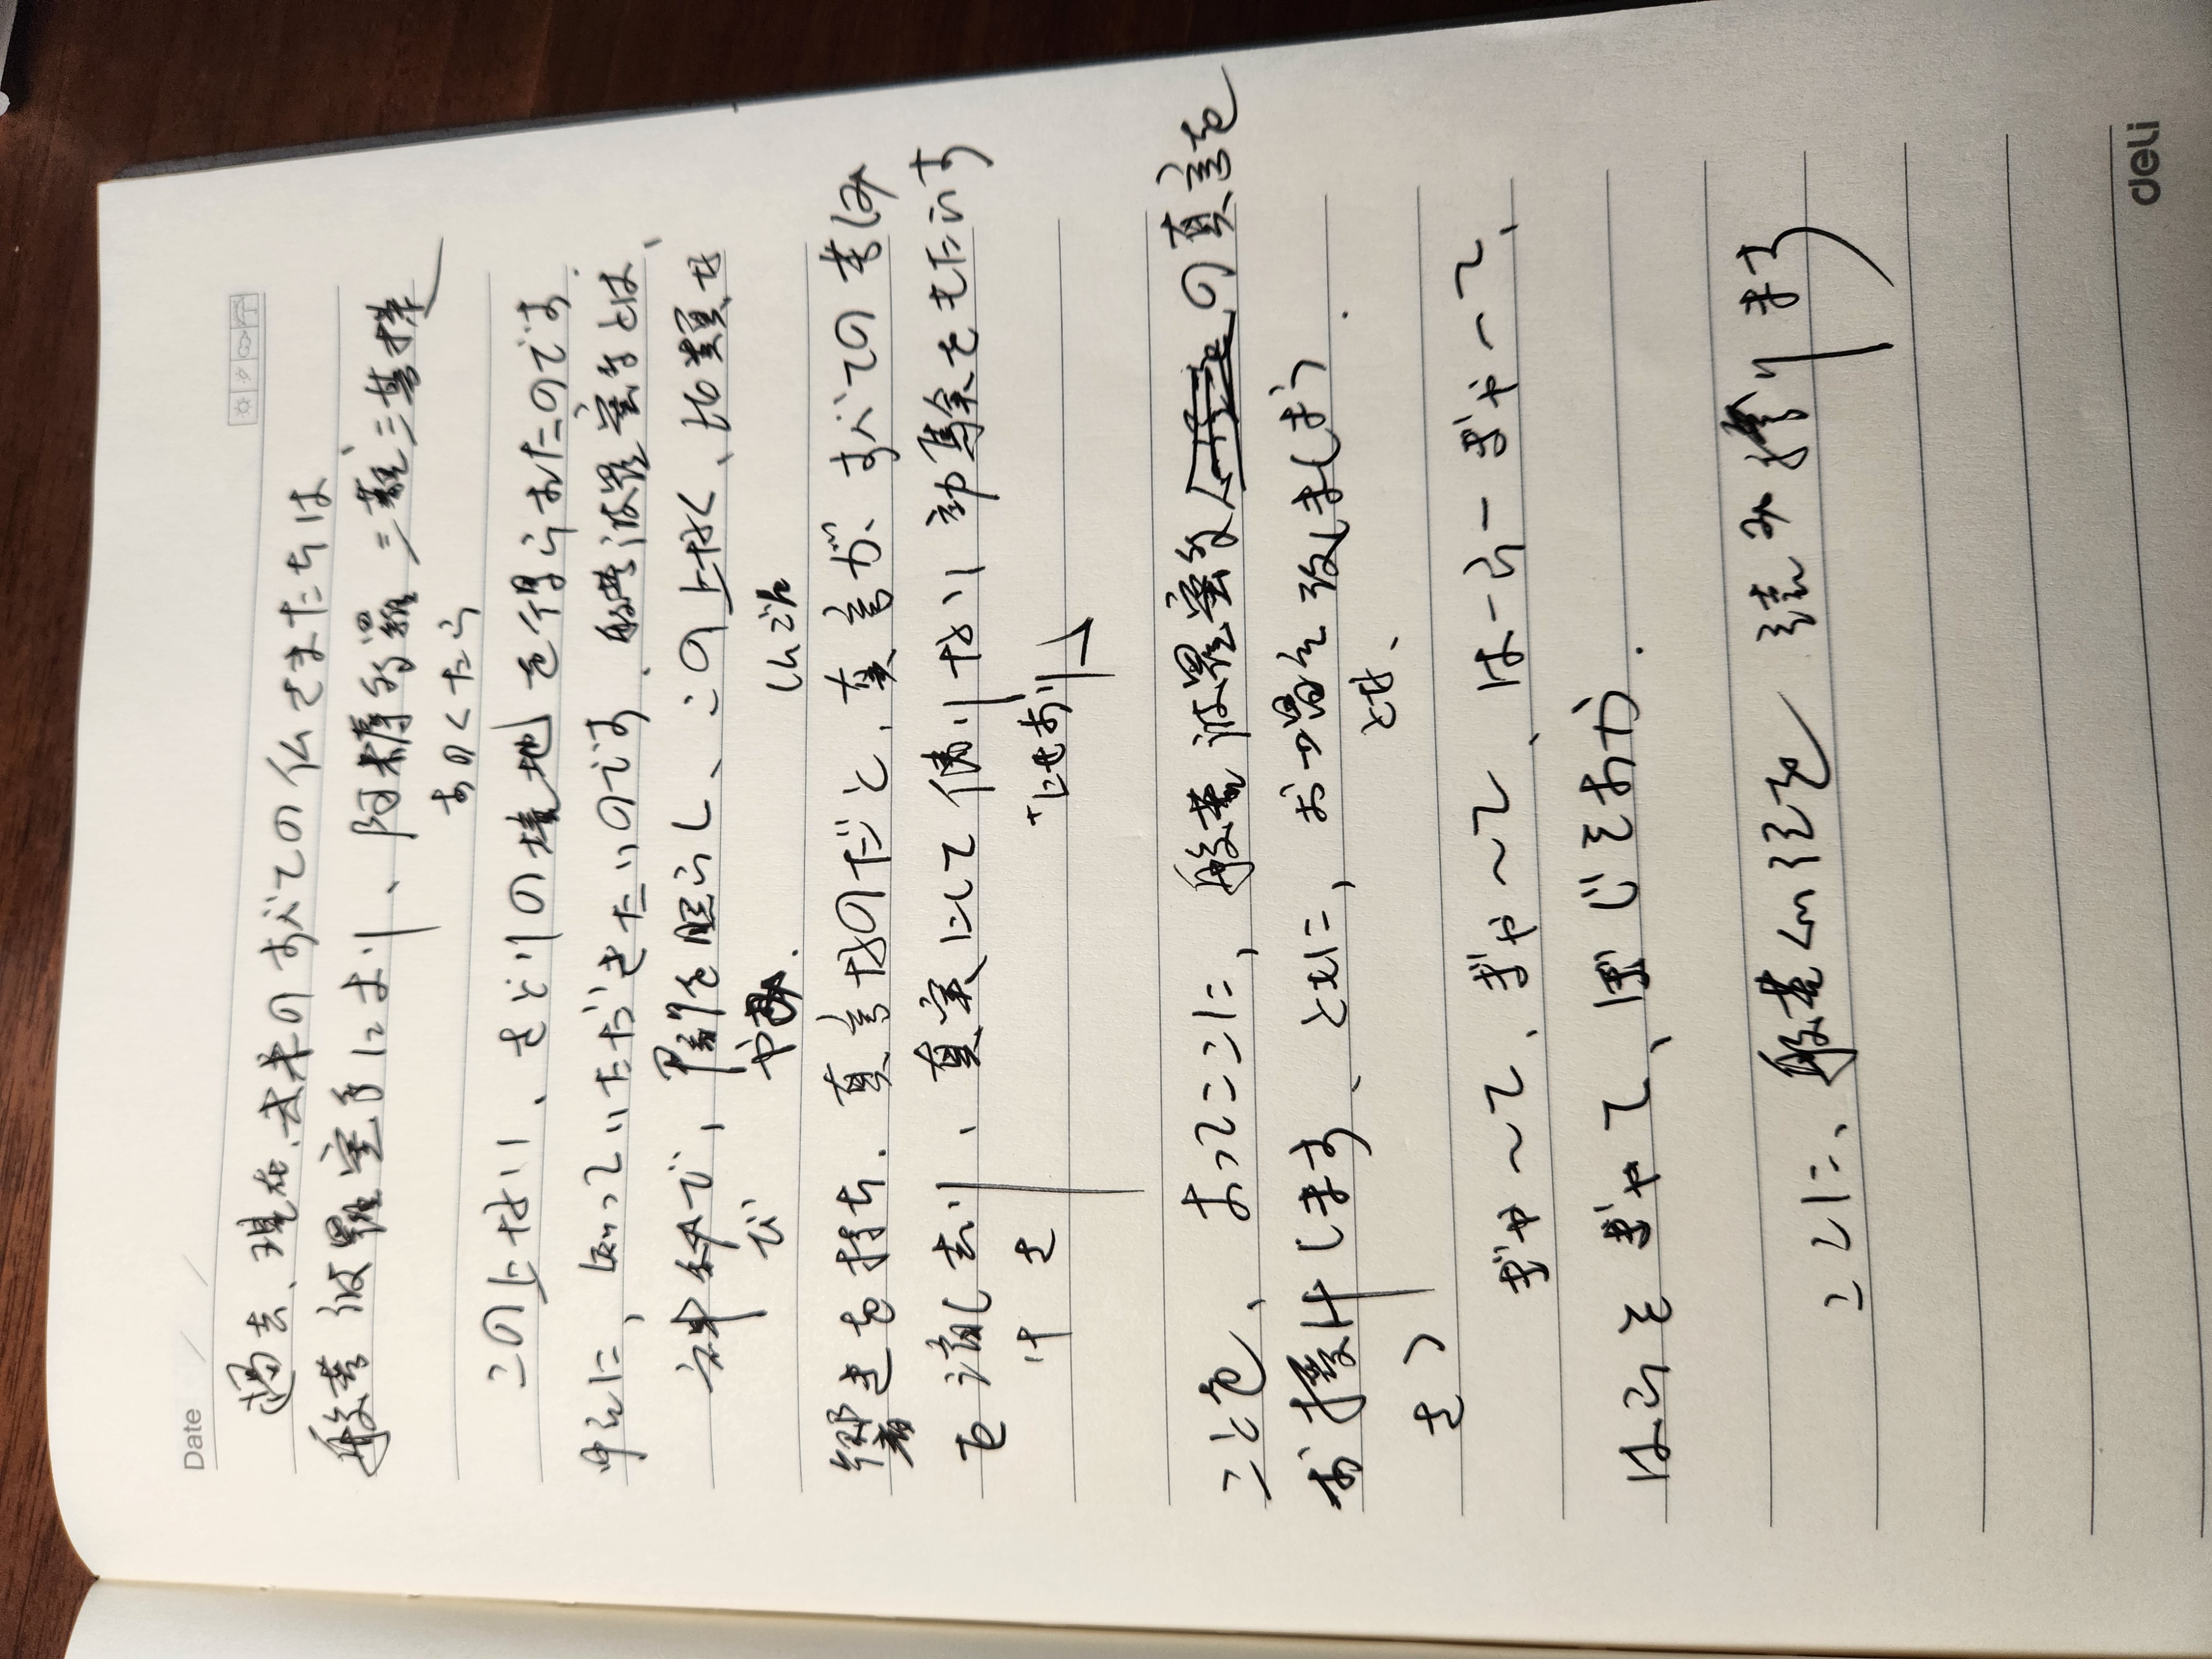 Date
過去、現在、未来のすべての仏さまたちは
般若波羅蜜多により、阿耨多羅三藐三菩提
あのくたら
この上ない、さとりの境地を得られたのです.
ゆえに、知っていただきたいのです. 般若波羅蜜多とは、
神秘で、闇を照らし、この上なく、比類なき
ひ やみ. しんごん
響きを持ち. 真言なのだと. 真言が、すべての苦しみ
を消し去り、真実にして偽りない 即駆除をもたらす
けさ "にせあり"
ことを、よってここに、般若波羅蜜多の真言を
お授けします、ともに、お唱え致しましょう.
さづ とな、
ぎゃ〜て、ぎゃ〜て、はーらーぎゃーて、
はらそぎゃて、ぼじそわか.
ここに、般若心経を 読み捧ります
deli